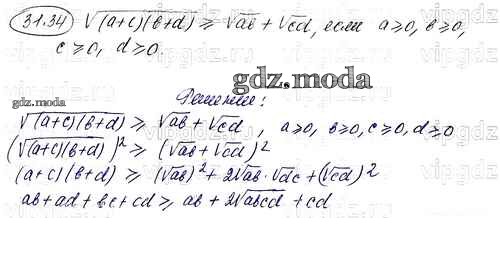 31.34 √(a+c)(b+d) ≥ √ab + √cd, если a≥0, b≥0,
c≥0, d≥0.
gdz.moda
gdz.moda
Решение:
√(a+c)(b+d) ≥ √ab + √cd, a≥0, b≥0, c≥0, d≥0
(√(a+c)(b+d))² ≥ (√ab + √cd)²
(a+c)(b+d) ≥ (√ab)² + 2√ab · √dc + (√cd)²
ab + ad + bc + cd ≥ ab + 2√abcd + cd